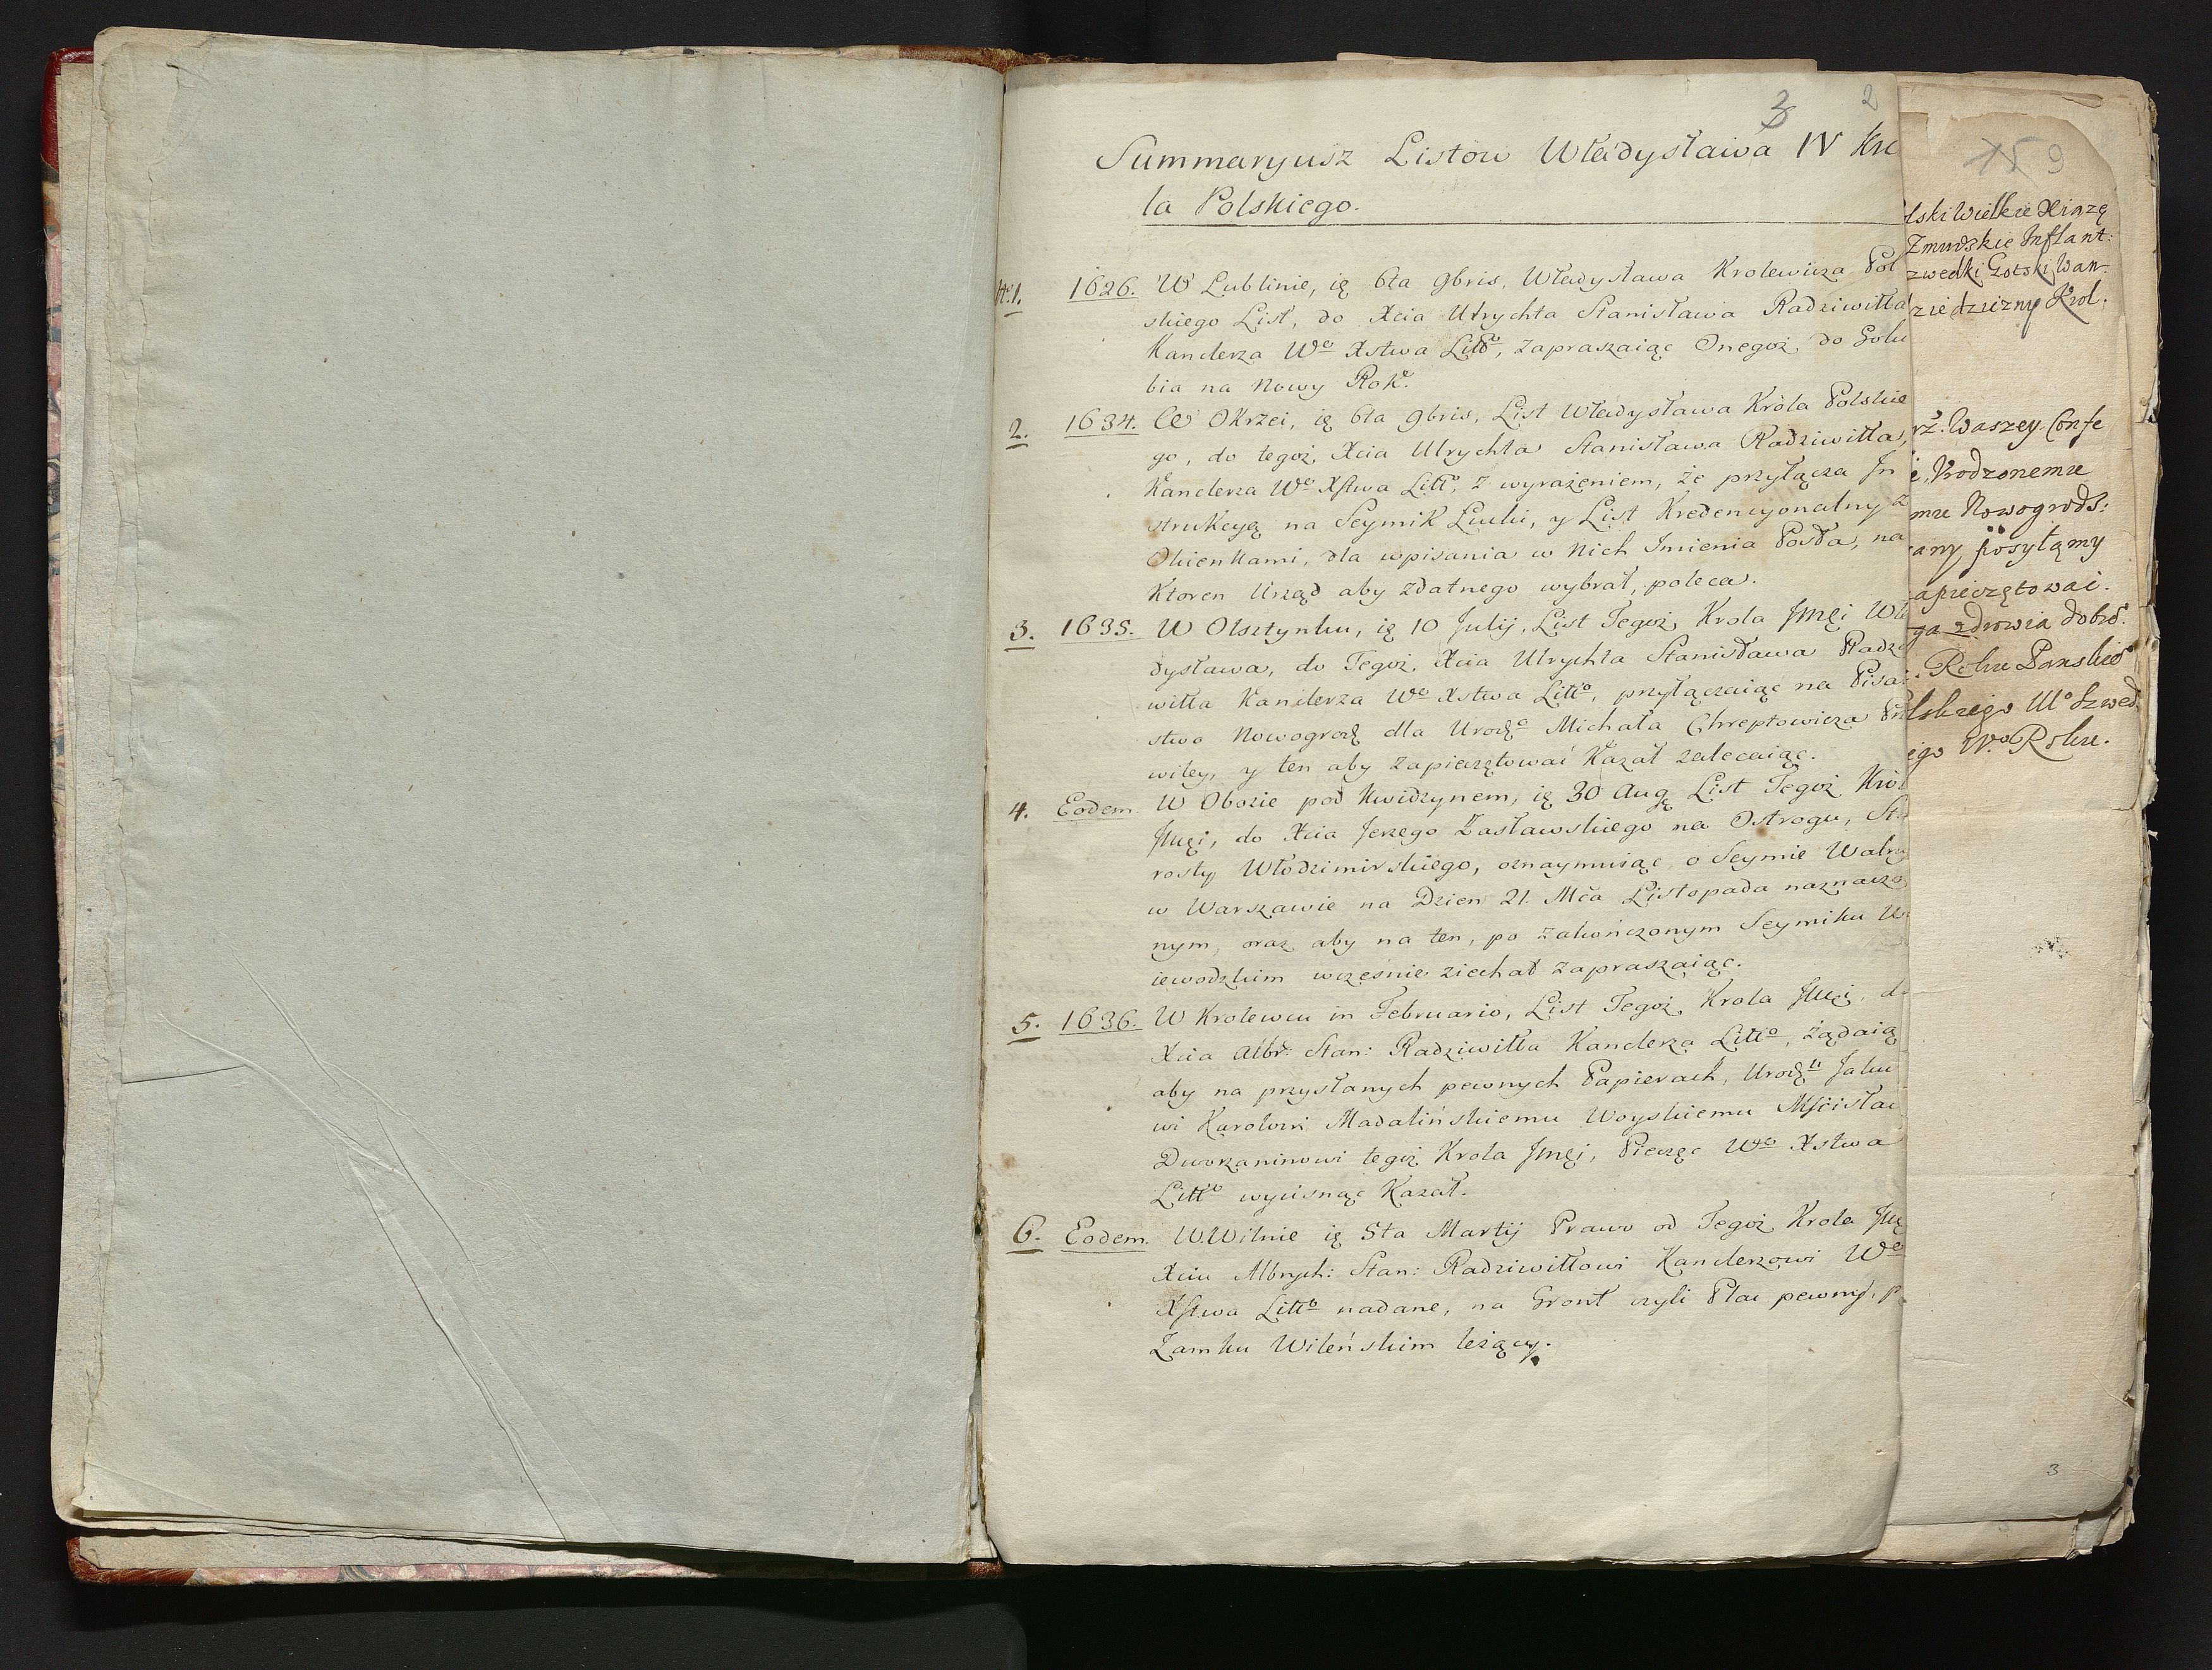 3 2
Summaryusz Listów Władysława IV Kró
la Polskiego.
Nº 1. 1626. W Lublinie, ię 6ta 9bris, Władysława Krolewicza Pol
skiego List, do Xcia Ulrychta Stanisława Radziwiłła
Kanclerza Wo Xstwa Litto, zapraszaiąc Onegoż, do Golu
bia na Nowy Rok.
2. 1634. W Okrzei, ię 6ta 9bris, List Władysława Króla Polskie
go, do tegoż, Xcia Ulrychta Stanisława Radziwiłła,
Kanclerza Wo Xstwa Litto, z wyrażeniem, że przyłącza In
strukcyą na Seymik Łucki, y List Kredencyonalny z
Okienkami, dla wpisania w nich Imienia Posła, na
Ktoren Urząd aby zdatnego wybrał, poleca.
3. 1635. W Olsztynku, ię 10 Julij, List Tegoż, Krola Jmęi Wła
dysława, do Tegoż, Xcia Ulrychta Stanisława Radzi
wiłła Kanclerza Wo Xstwa Litto, przyłączaiąc na Pisar
stwo Nowogrodz dla Urodzo Michała Chreptowicza
wiley, y ten aby zapieczętować Kazał zalecaiąc.
4. Eodem. W Obozie pod Kwidzynem, ię 30 Aug List Tegoż Kró
Jmęi, do Xcia Jerzego Zasławskiego na Ostrogu, Sta
rosty Włodzimirskiego, oznaymuiąc, o Seymie Walny
w Warszawie na Dzien 21. Mca Listopada naznaczo
nym, oraz aby na ten, po zakończonym Seymiku W
iewodzkim wcześnie ziechał zapraszaiąc.
5. 1636. W Krolewcu in Februario, List Tegoż, Krola Jmęi, do
Xcia Albr: Stan: Radziwiłła Kanclerza Litto, żądaią
aby na przysłanych pewnych Papierach, Urodzu Jaku
wi Karolowi Madalińskiemu Woyskiemu Mścisław
Dworzaninowi tegoż Krola Jmęi, Pieczęc Wgo Xstwa
Litto wycisnąc Kazał.
6. Eodem. W Wilnie ię 5ta Martij Prawo od Tegoż Krola Jmę
Xciu Albrych: Stan: Radziwiłłowi Kanclerzowi Wo
Xstwa Litto nadane, na Gront czyli Plac pewny, p
Zamku Wileńskim leżący.
15 9
lski Wielkie Xiążę
Zmudskie Inflant:
zwedki Gotski Wan.
ziedzizny Krol.
rż. Waszey. Confe
i, Vrodzonemu
mu Nowogrods:
any posyłamy
apieczętować.
ga zdrowia dobre.
Roku Panskieo
lskiego IIIo Szwed
ego IVo Roku.
3